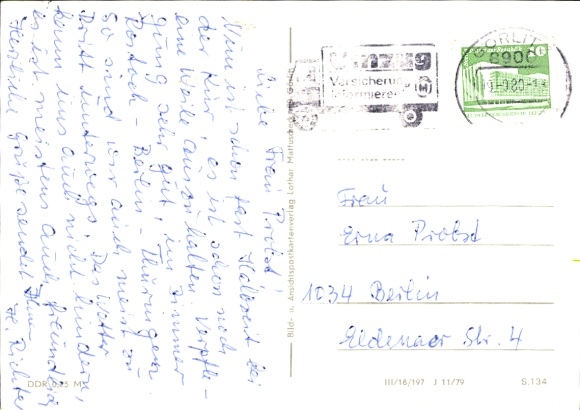 Liebe Frau Probst!
Nun ist schon fast Halbzeit bei
der Kur, es ist schon noch
eine Weile auszuhalten. Verpfle-
gung sehr gut, im Zimmer
Rostock - Berlin - Thüringen
So sind wir auch meist zu
Dritt unterwegs. Das Wetter
kann uns auch nicht hindern,
es ist meistens auch freundlich
Herzliche Grüße sendet Ihnen
Fr. Richter
DDR 0,25 M
Bild- u. Ansichtspostkartenverlag Lothar
Versicherung
informieren
GÖRLITZ
8900
Frau
Erna Probst
1034 Berlin
Eldenaer Str. 4
III/18/197 J 11/79
S.134